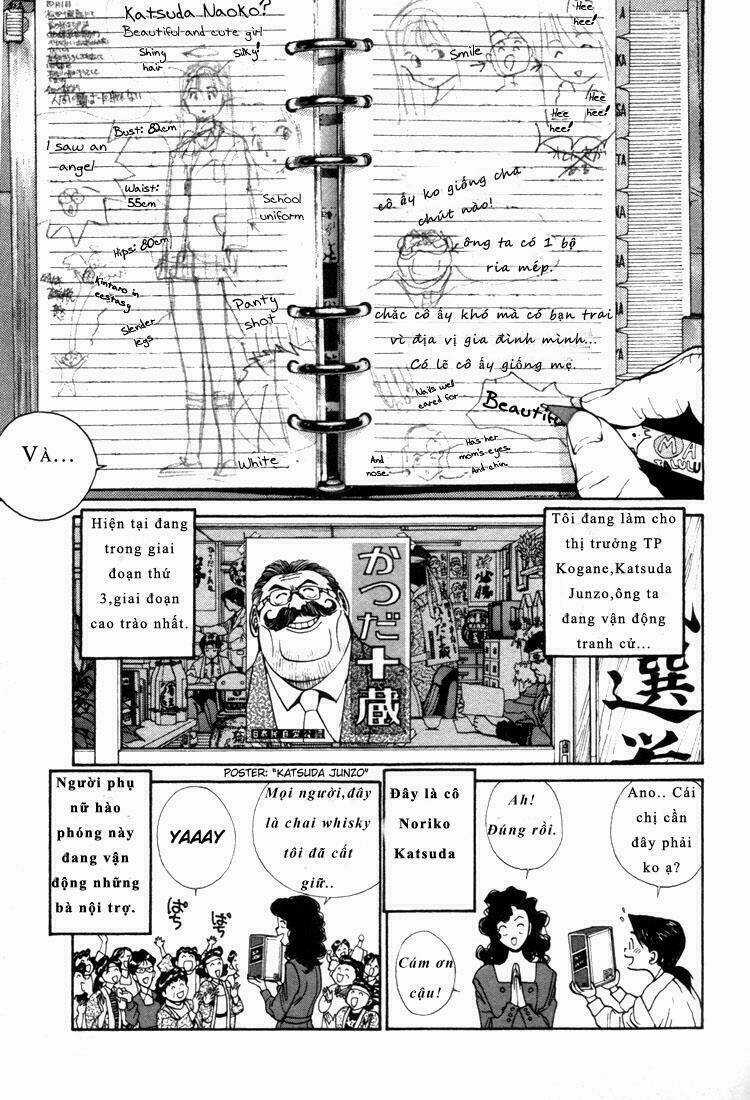 Katsuda Naoko?
Beautiful and cute girl
Shiny
hair
Silky!
Bust: 82cm
I saw an
angel
Waist:
55cm
School
uniform
Hips: 80cm
Kintaro in
ecstasy
Slender
legs
Panty
shot
White
Hee
hee!
Smile
Hee
hee!
Hee
hee!
A
KA
SA
TA
NA
cô ấy ko giống cha
chút nào!
ông ta có 1 bộ
ria mép.
chắc cô ấy khó mà có bạn trai
vì địa vị gia đình mình...
Có lẽ cô ấy giống mẹ.
Nails well
cared for...
Beautiful
And
nose.
Has her
mom's eyes.
And chin.
VÀ...
Hiện tại đang
trong giai
đoạn thứ
3,giai đoạn
cao trào nhất.
Tôi đang làm cho
thị trưởng TP
Kogane,Katsuda
Junzo,ông ta
đang vận động
tranh cử...
かつだ十蔵
選挙
POSTER: "KATSUDA JUNZO"
Người phụ
nữ hào
phóng này
đang vận
động những
bà nội trợ.
YAAAY
Mọi người,đây
là chai whisky
tôi đã cất
giữ..
ぱち
ぱち
Đây là cô
Noriko
Katsuda
Ah!
Đúng rồi.
Ano.. Cái
chị cần
đây phải
ko ạ?
Cám ơn
cậu!